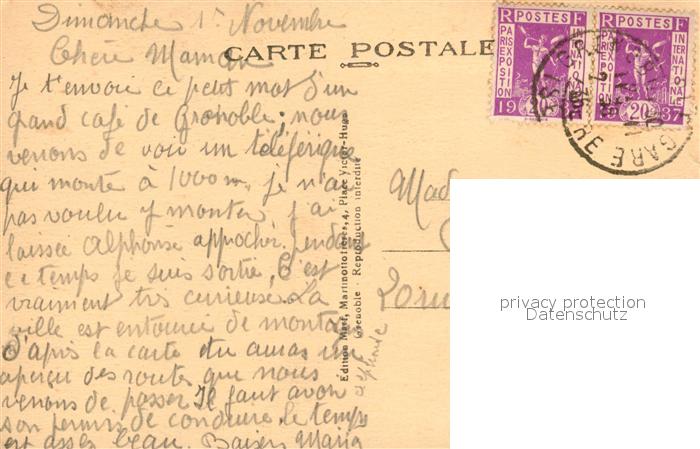 Dimanche 1r Novembre
Chère Maman
CARTE POSTALE
Je t'envoie ce petit mot d'un
grand café de Grenoble; nous
venons de voir un téléferique
qui monte à 1000m, je n'ai
pas voulu y monter j'ai
laissée Alphonse approcher. Pendant
ce temps je suis sortie, C'est
vraiment très curieuse. La
ville est entourée de montag
D'après la carte tu auras un
aperçu des routes que nous
venons de passer Il faut avoir
son permis de conduire, le temps
est assez beau. Baisers Maria
Alphonse
Édition Martinotto frères, 4, Place Victor-Hugo
Grenoble - Reproduction interdite
RF POSTES
PARIS EXPOSITION
INTERNATIONALE
1937
20
RF POSTES
PARIS EXPOSITION
INTERNATIONALE
1937
20
GARE
Mad
privacy protection
Datenschutz